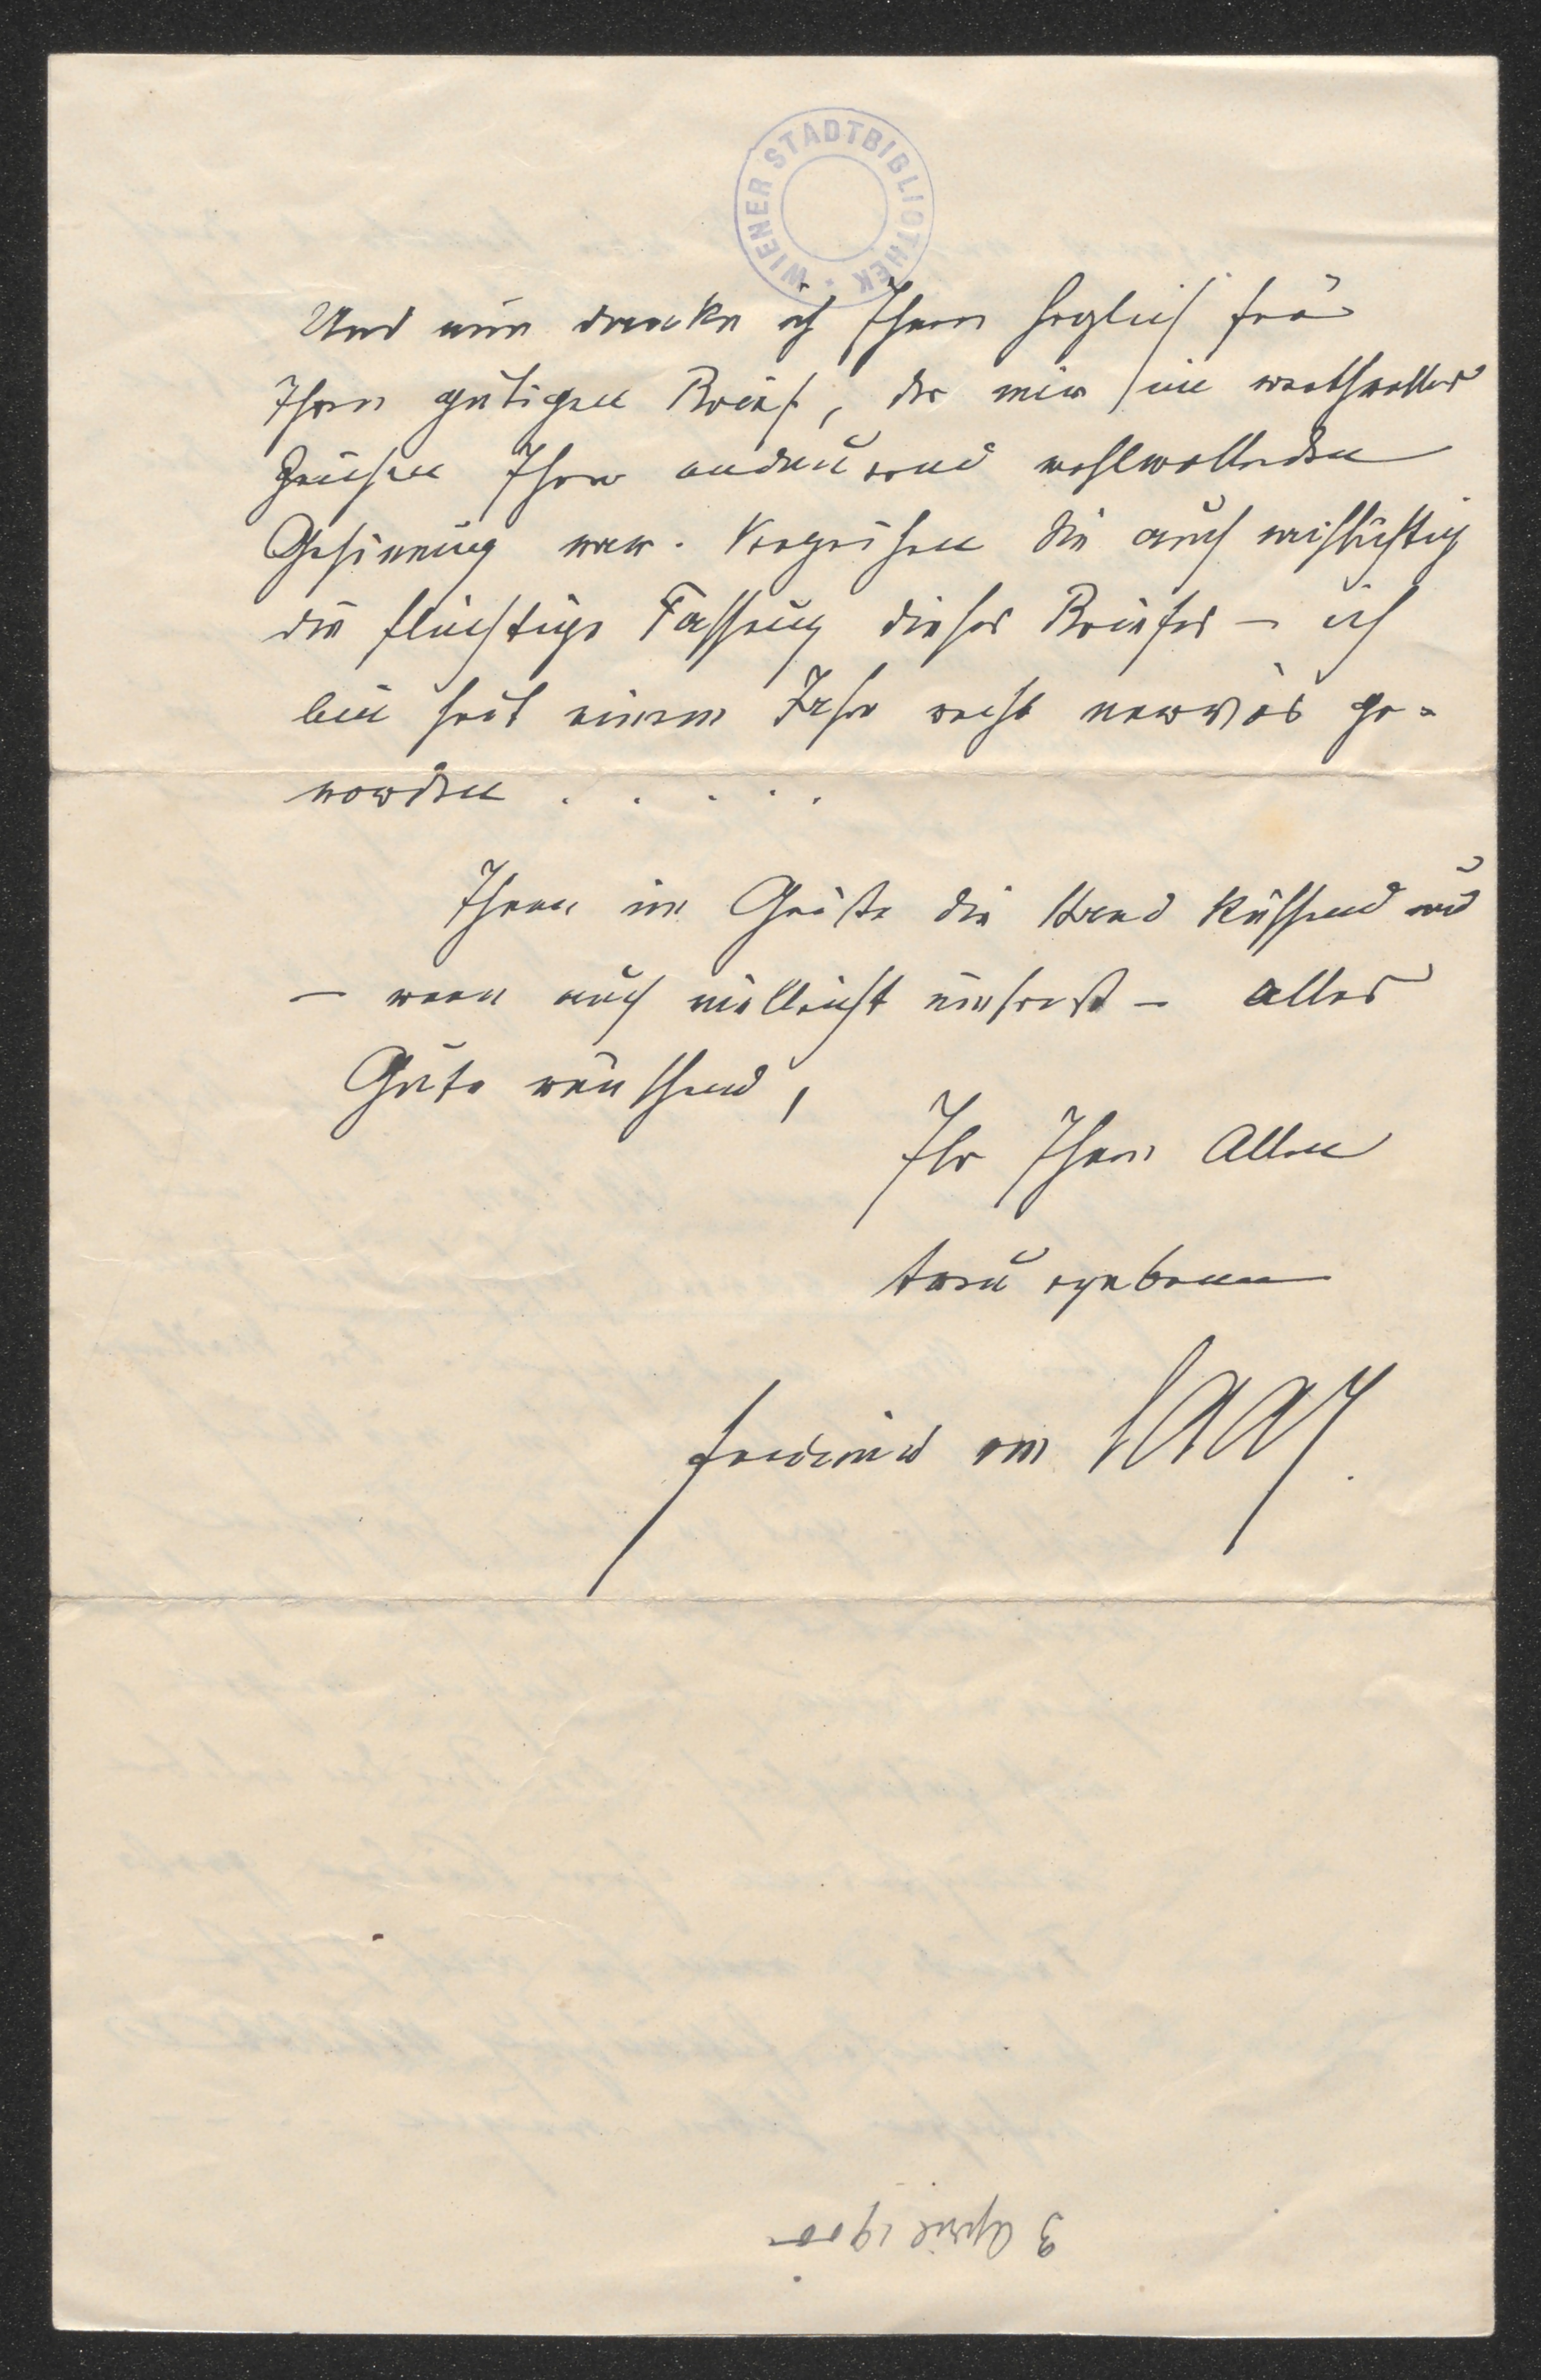 WIENER STADTBIBLIOTHEK
Und nun danke ich Ihnen herzlich für
Ihren gütigen Brief, der mir ein werthvoller
Zeichen Ihrer andauernd wohlwollenden
Gesinnung war. Verzeihen Sie auch nachsichtig
die flüchtige Fassung dieses Briefes – ich
bin seit einem Jahr recht nervös ge-
worden . . . . .
Ihnen im Geiste die Hand küssend und
– wenn auch vielleicht – alles
Gute wünschend,
Ihr Ihnen Allen
treu ergebener
Ferdinand von Saar.
3 April 1900